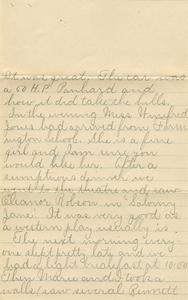 It was great. The car was
a 60 H.P. Panhard and
how it did take the hills.
In the evening Miss Winifred
Jones had arrived from Farm-
ington school. She is a fine
girl and I am sure you
would like her. After a
sumptious dinner we
went to the theatre and saw
Eleanor Robson in Salomy
Jane. It was very good as
a western play usually is.
The next morning every
one slept pretty late and we
had a light breakfast at 10:00
Then and I took a
walk (saw several Bennett